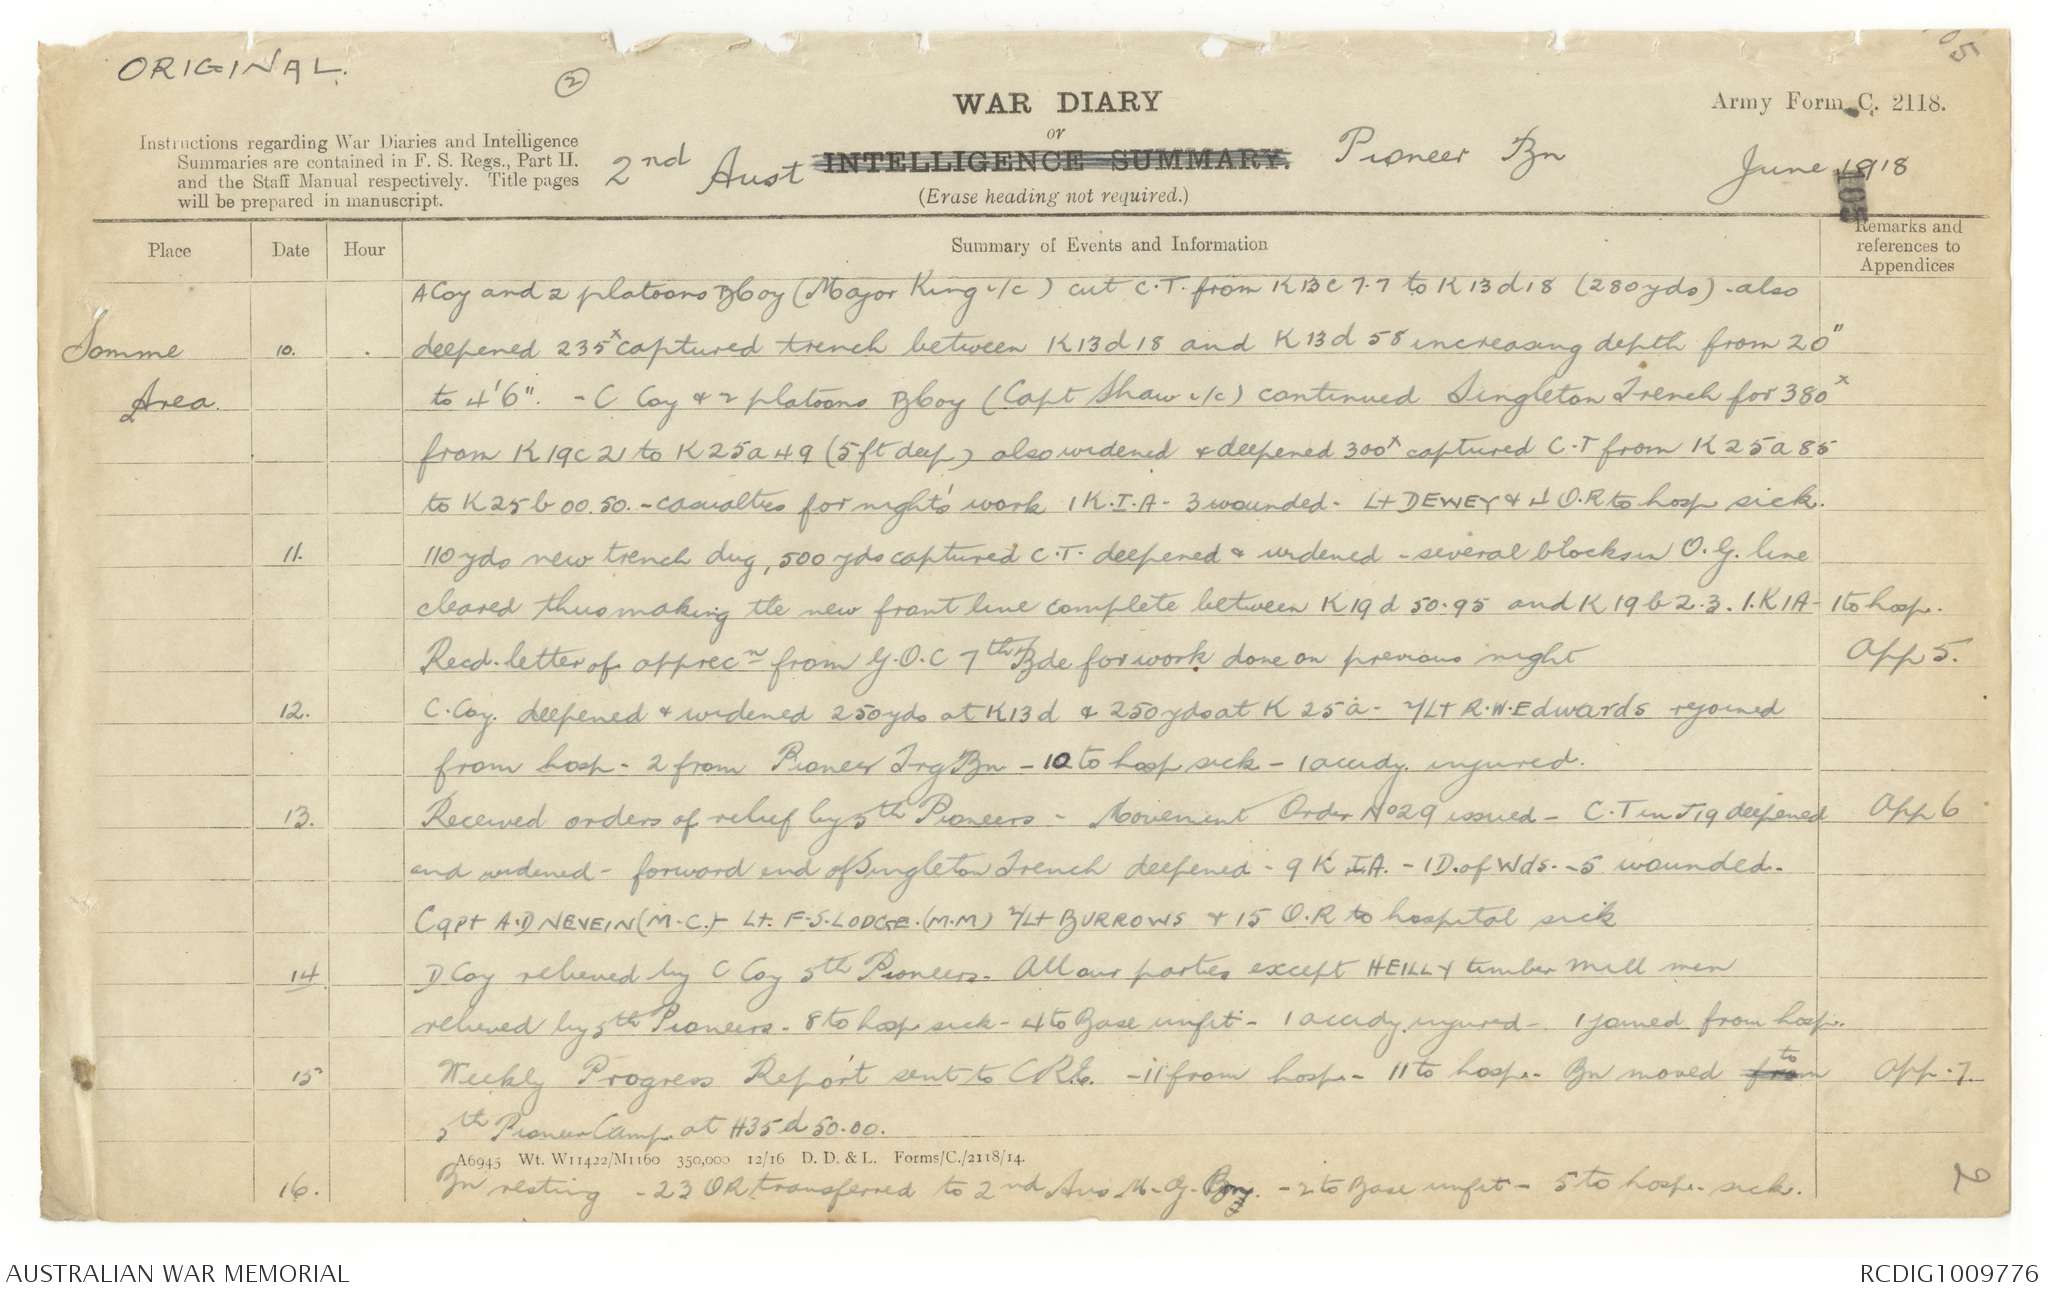 ORIGINAL.
2
05
WAR DIARY
Army Form C. 2118.
or
Instructions regarding War Diaries and Intelligence
Summaries are contained in F. S. Regs., Part II.
and the Staff Manual respectively. Title pages
will be prepared in manuscript.
2nd Aust INTELLIGENCE SUMMARY. Pioneer Bn
June 1918
105
(Erase heading not required.)
Place Date Hour Summary of Events and Information Remarks and references to Appendices
A Coy and 2 platoons B Coy (Major King i/c) cut C.T. from K13c 7.7 to K13d 18 (280yds) - also
Somme 10. deepened 235x captured trench between K13d 18 and K13d 58 increasing depth from 20"
Area to 4'6". - C Coy & 2 platoons B Coy (Capt Shaw i/c) continued Singleton Trench for 380x
from K19c 21 to K25a 49 (5ft deep) also widened & deepened 300x captured C.T from K25a 85
to K25b 00.50. - casualties for night's work 1 K.I.A - 3 wounded - Lt DEWEY & 4 O.R to hosp sick.
11. 110yds new trench dug, 500 yds captured C.T. deepened & widened - several blocks in O.G. line
cleared thus making the new front line complete between K19d 50.95 and K19b 2.3. 1.KIA - 1 to hosp.
Recd. letter of apprecn from G.O.C 7th Bde for work done on previous night App 5.
12. C.Coy. deepened & widened 250yds at K13d & 250yds at K25a - 2/Lt R.W. Edwards rejoined
from hosp - 2 from Pioneer Trg Bn - 10 to hosp sick - 1 accidy. injured.
13. Received orders of relief by 5th Pioneers - Movement Order No 29 issued - C.T in J19 deepened App 6
and widened - forward end of Singleton Trench deepened - 9 K.I.A. - 1 D.of Wds. - 5 wounded.
Capt A.D NEVEIN (M.C.) - Lt. F.S. LODGE. (M.M) 2/Lt BURROWS & 15 O.R to hospital sick
14 D Coy relieved by C Coy 5th Pioneers. All our parties except HEILLY timber mill men
relieved by 5th Pioneers - 8 to hosp sick - 4 to Base unfit - 1 accidy. injured - 1 joined from hosp.
15 Weekly Progress Report sent to C.R.E. - 11 from hosp. - 11 to hosp. - Bn moved from to App. 7.
5th Pioneer Camp at H35d 50.00.
A6945 Wt. W11422/M1160 350,000 12/16 D. D. & L. Forms/C./2118/14.
16. Bn resting - 23 OR transferred to 2nd Aus M.G. Bn. - 2 to Base unfit - 5 to hosp. sick.
2
AUSTRALIAN WAR MEMORIAL
RCDIG1009776